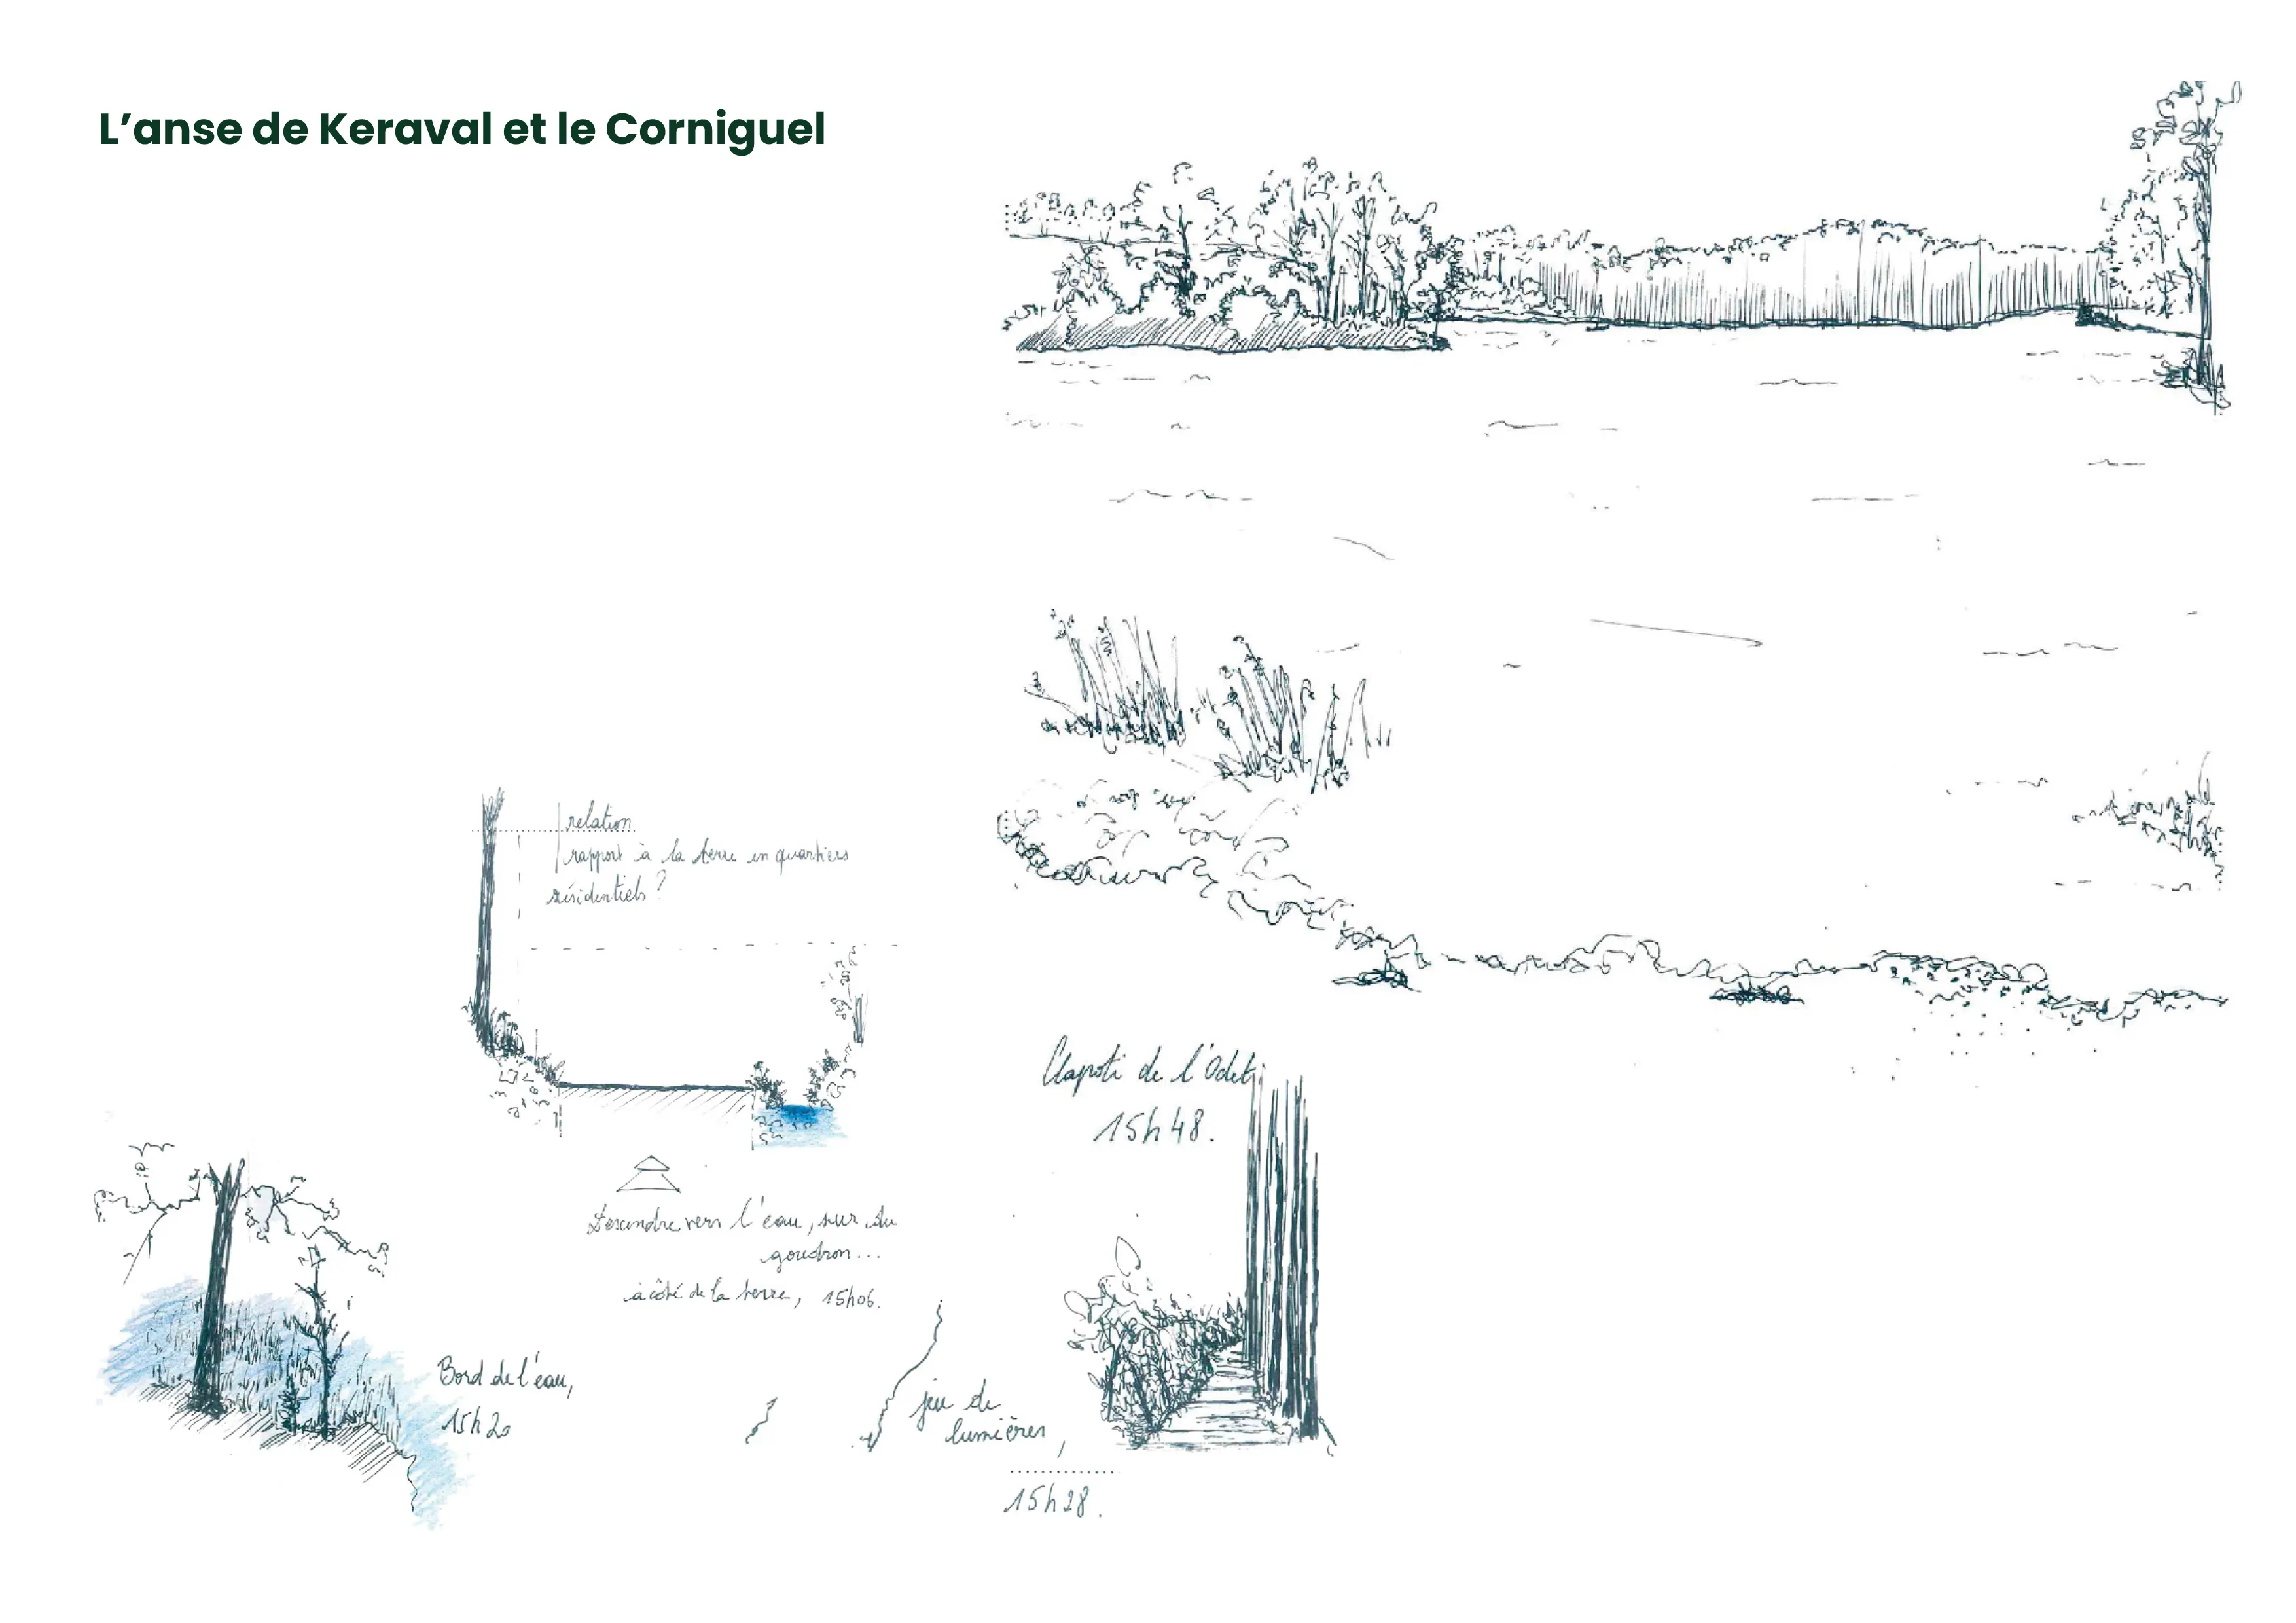 L'anse de Keraval et le Corniguel
relation
rapport à la terre en quartiers
résidentiels ?
Descendre vers l'eau, sur du
goudron...
à côté de la terre, 15h06.
Bord de l'eau,
15h20
jeu de
lumières,
15h28.
Clapoti de l'Odet,
15h48.